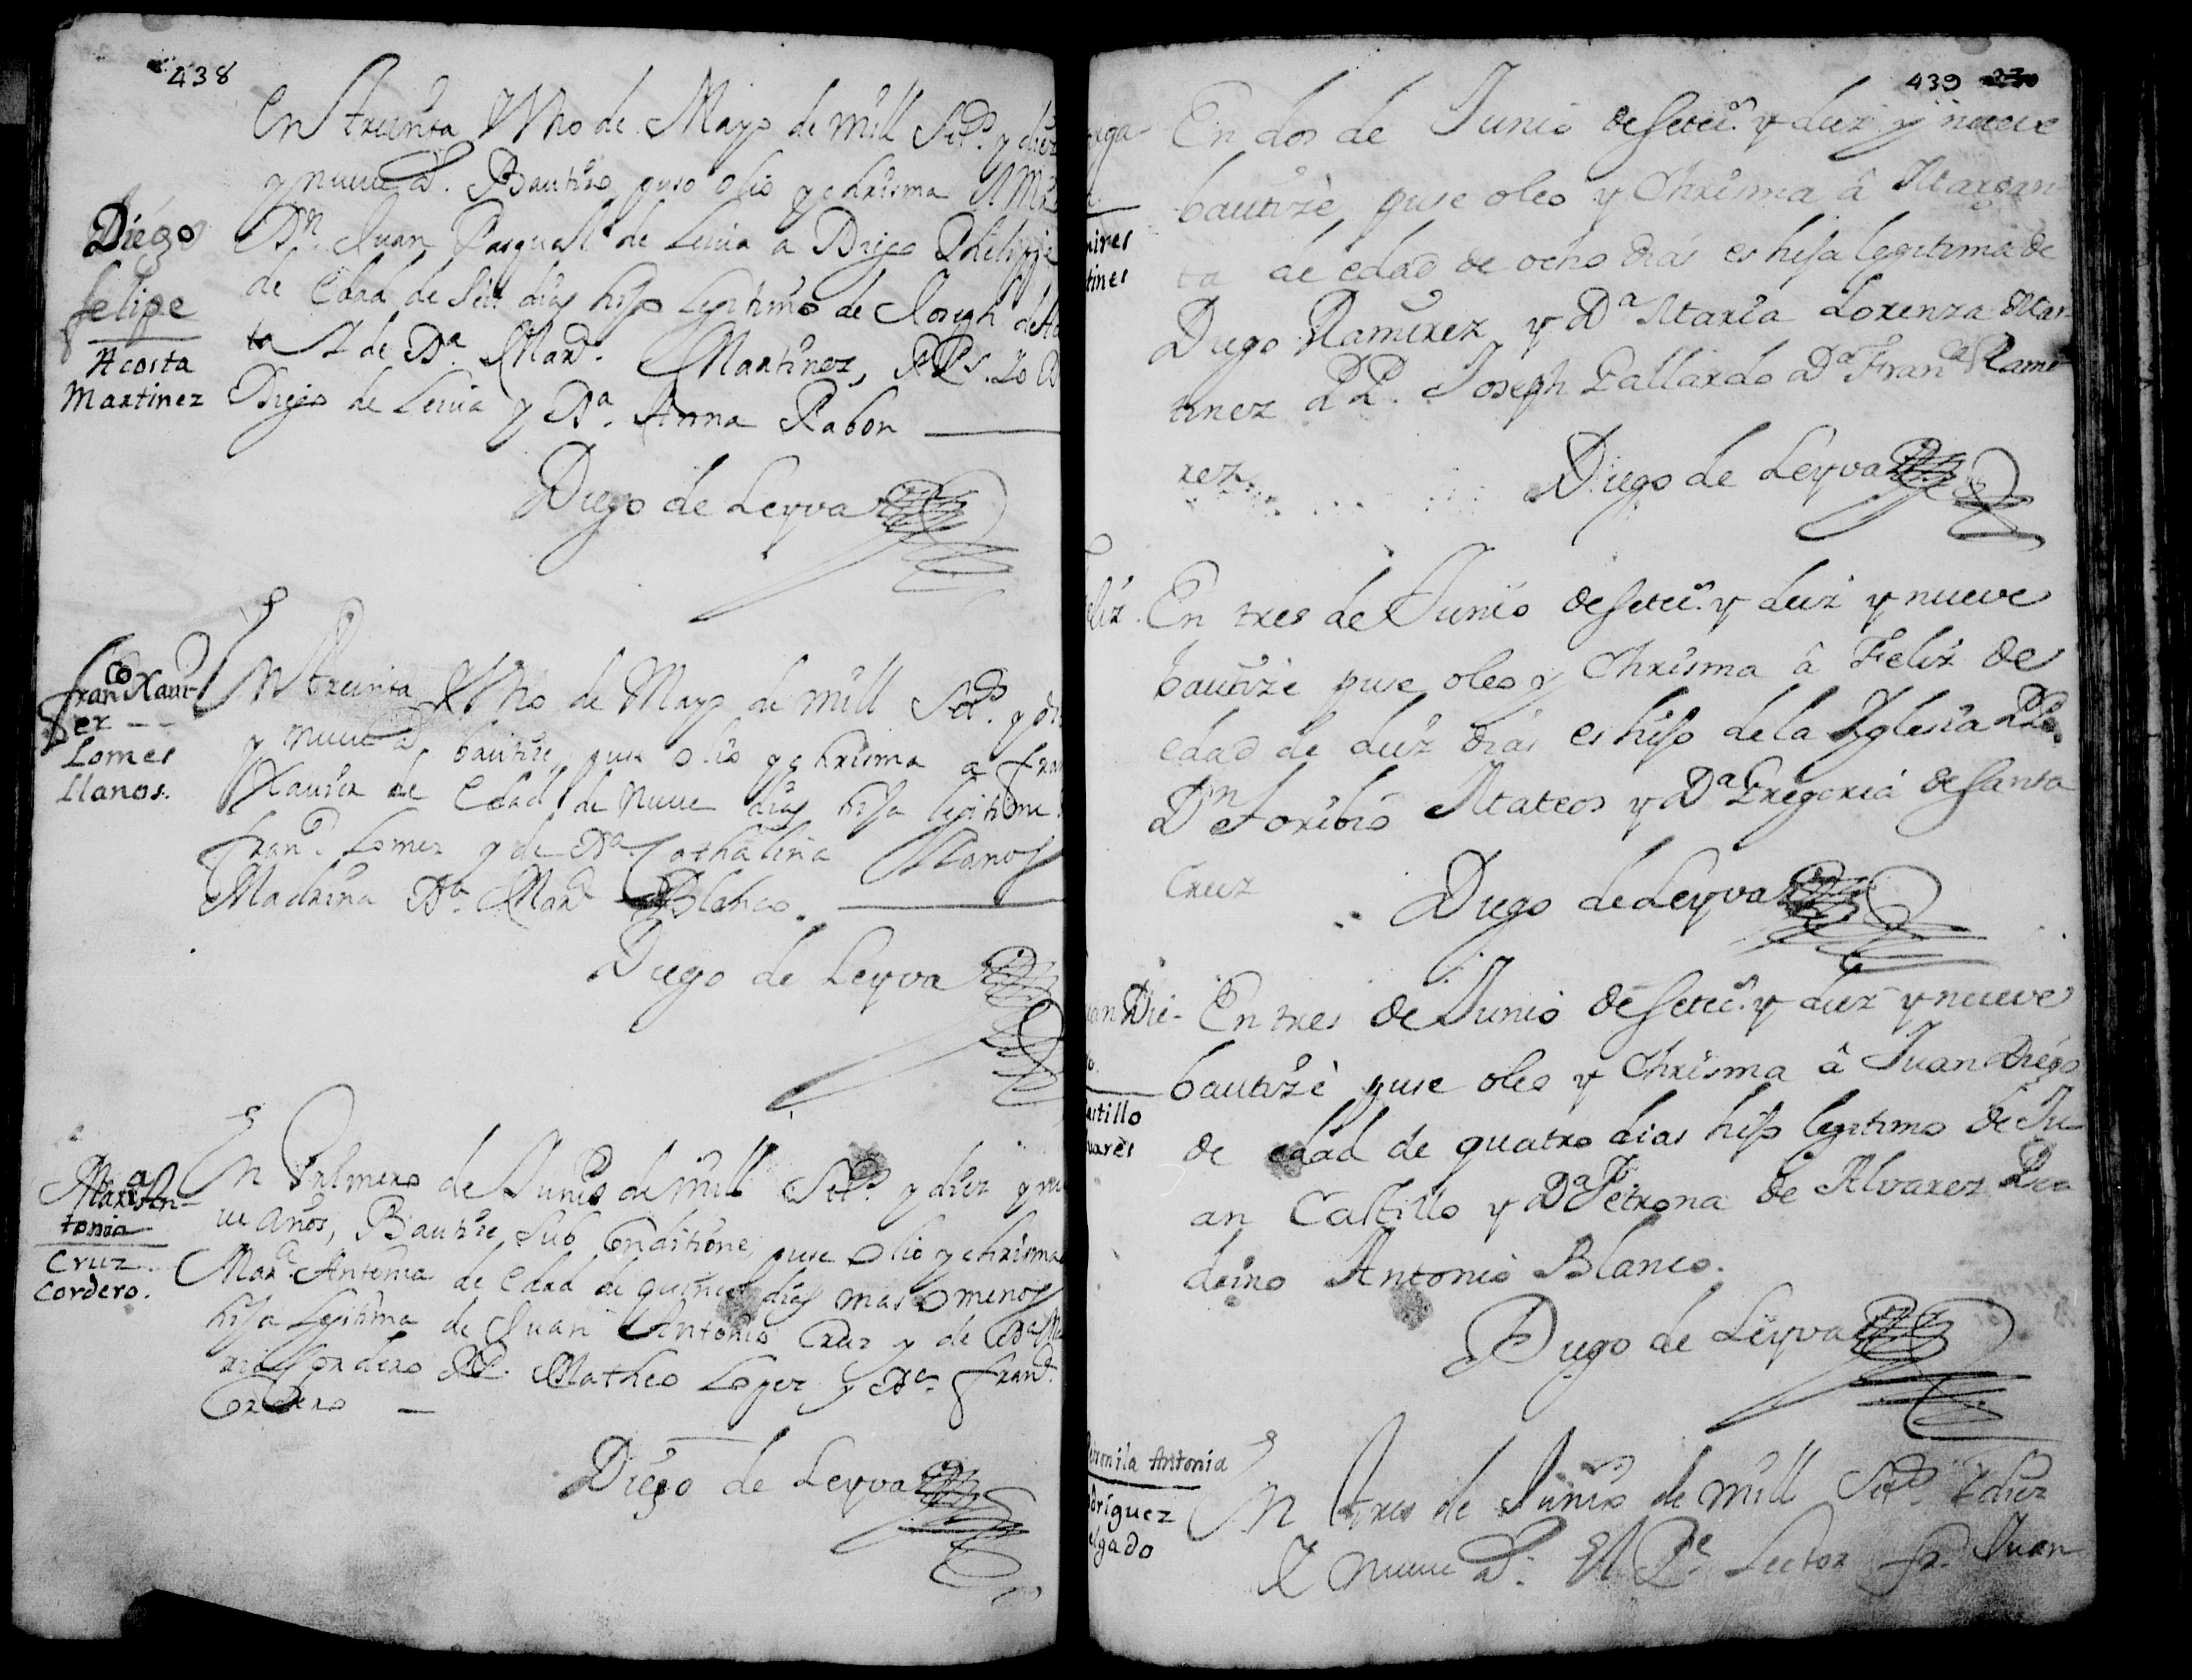 438
En treinta Y Uno de Mayo de mill Setᵒˢ. y diez
y nueve aˢ. Bautiso puso olio y chrisma
Dⁿ. Juan Pasqual de Leiva a Diego Phelippe
de Edad de Seis dias hijo Lejitimo de Joseph de
ta Y de Dᵃ. Marᵃ. Martinez, PPˢ. Lo
Diego de Leiva y Dᵃ. Anna Pabon
Diego de Leyva
Diego
felipe
Acosta
Martinez
En treinta Y Uno de Mayo de mill Setᵒˢ. y
y nueve aˢ. bautise puse olio y chrisma a fran
Xavier de Edad de nueve dias hijo lejitimo
franᶜᵒ. Lomes y de Dᵃ. Cathalina Llanos
Madrina Dᵃ. Marᵃ Blanco.
Diego de Leyva
franᶜᵒ Xavi-
er
Lomes
Llanos.
En Primero de Junio de mill Setᵒˢ. y diez y nu
ve años, Bautise Sub Conditione, puse olio y chrisma
Marᵃ. Antonia de Edad de quinse dias mas o menos
hija Lejitima de Juan Antonio Cruz y de Dᵃ Ma
ria Cordero PP. Matheo Lopez y Dᵃ. franᶜᵃ.
Cordero
Diego de Leyva
Marᵃ An-
tonia
Cruz.
Cordero.
439
En dos de Junio de setecᵒˢ. y diez y nueve
bautizè, puse oleo y Chrisma â Margari-
ta de edad de ocho dias es hija legitima de
Diego Ramirez y Dᵃ Maria Lorenza Mar-
tinez PP. Joseph Gallardo Dᵃ Franᶜᵃ Rami-
rez.
Diego de Leyva
mires
tines
En tres de Junio de setecᵒˢ. y diez y nueve
bautizè puse oleo y Chrisma â Feliz de
edad de diez dias es hijo de la Yglesia PP.
Dⁿ Toribio Mateos y Dᵃ Gregoria de Santa
Cruz
Diego de Leyva
eliz.
En tres de Junio de setecᵒˢ. y diez y nueve
bautizè puse oleo y Chrisma â Juan Diego
de edad de quatro dias hijo legitimo de Ju-
an Castillo y Dᵃ Petrona de Alvarez Pa
drino Antonio Blanco.
Diego de Leyva
uan Die-
go.
astillo
varès
En tres de Junio de mill Setᵒˢ. Y diez
Y nueve aˢ. El Pᵉ. Lector fr. Juan
tronila Antonia
odriguez
elgado